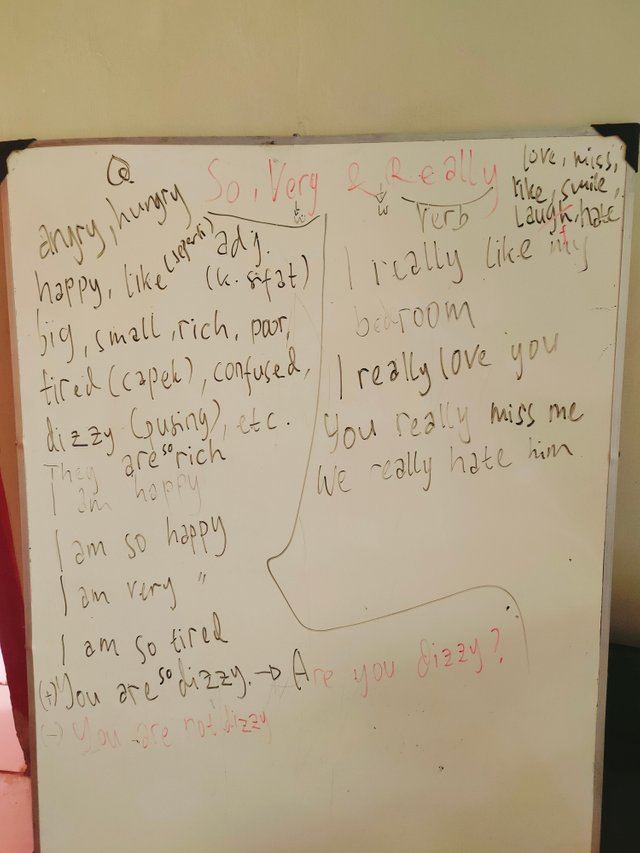 So, Very & Really
angry, hungry
adj.
(k. sifat)
happy, like (seperti)
big, small, rich, poor,
tired (capek), confused,
dizzy (pusing), etc.
They are so rich
I am happy
I am so happy
I am very "
I am so tired
(+) You are so dizzy. → Are you dizzy?
(-) You are not dizzy
love, miss,
like, smile,
laugh, hate
verb
I really like my
bedroom
I really love you
You really miss me
We really hate him